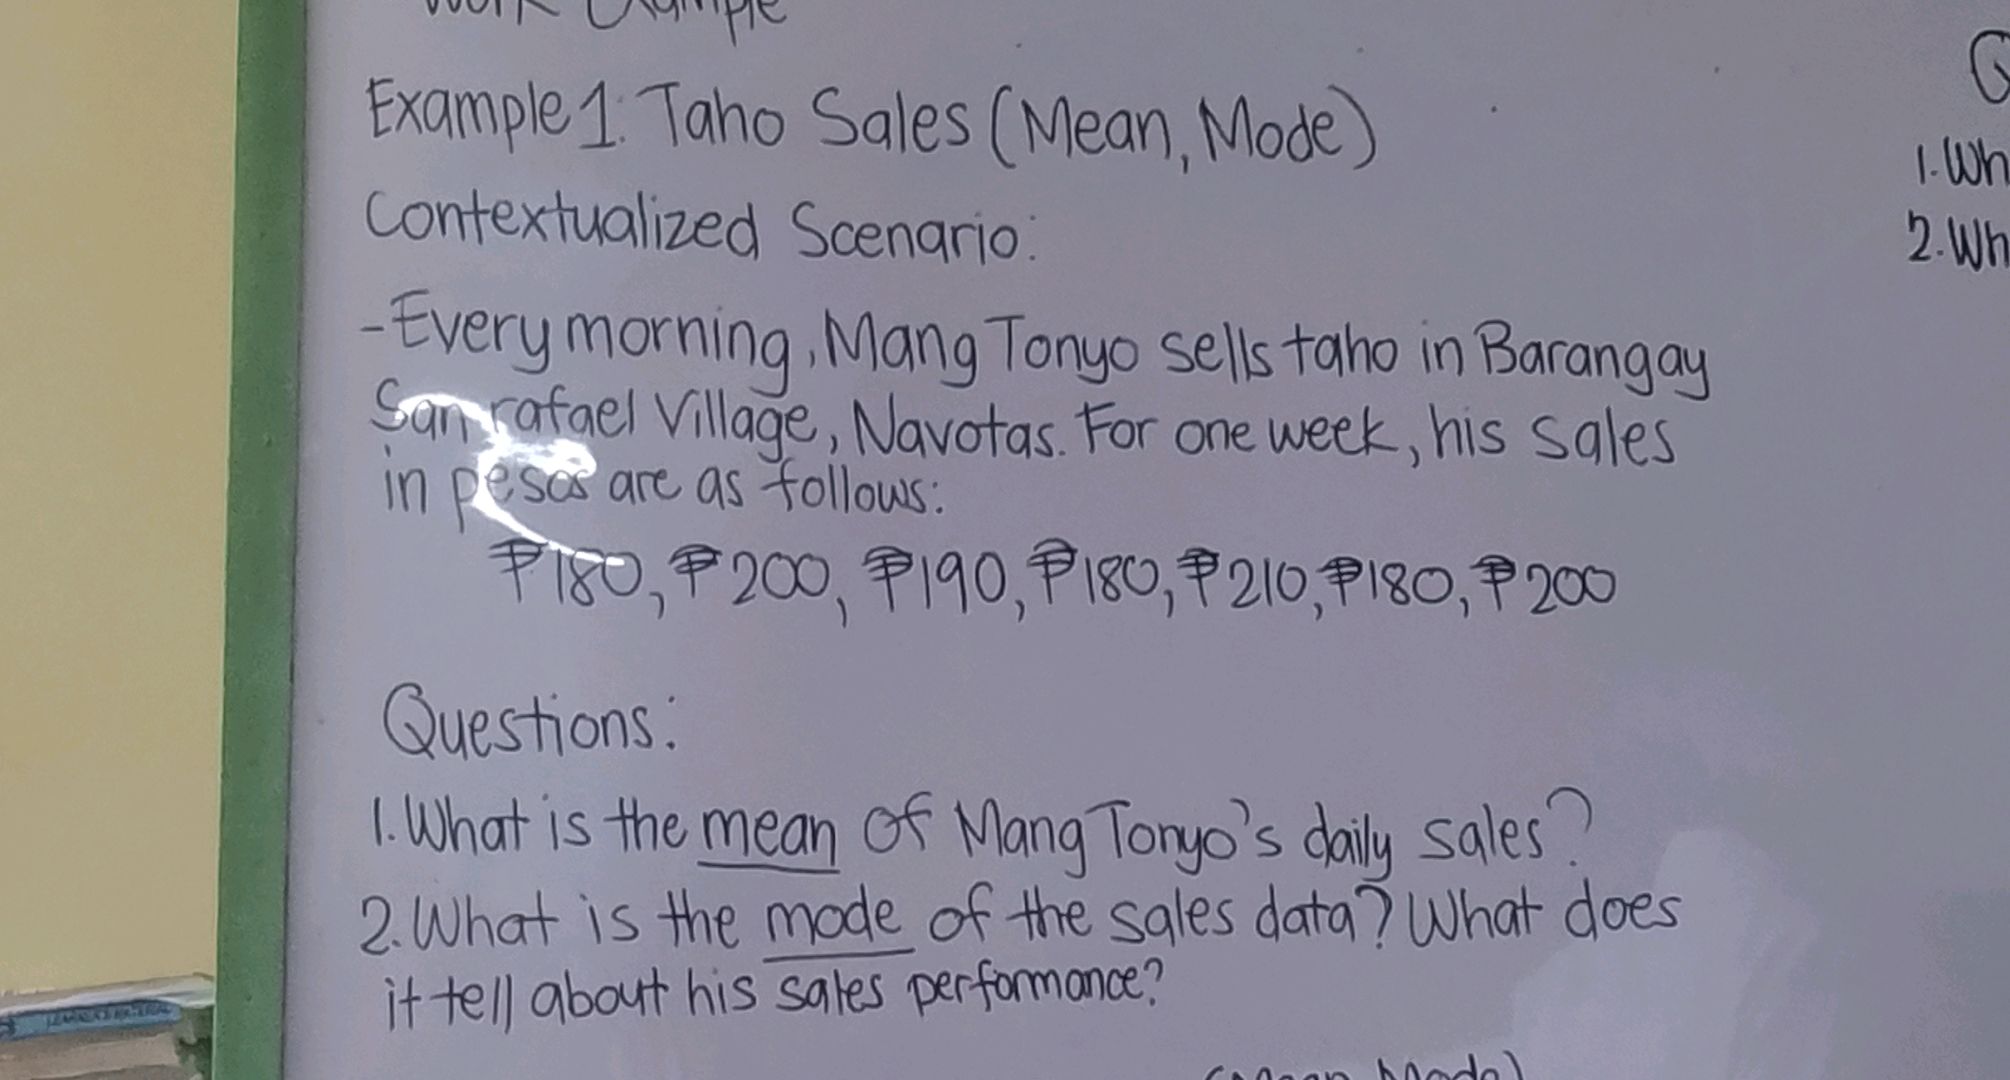 Work Example
Example 1: Taho Sales (Mean, Mode)
Contextualized Scenario:
-Every morning, Mang Tonyo sells taho in Barangay
San rafael Village, Navotas. For one week, his sales
in pesos are as follows:
₱180, ₱200, ₱190, ₱180, ₱210, ₱180, ₱200
Questions:
1. What is the mean of Mang Tonyo's daily sales?
2. What is the mode of the sales data? What does
it tell about his sales performance?
(Mean, Mode)
1. Wh
2. Wh